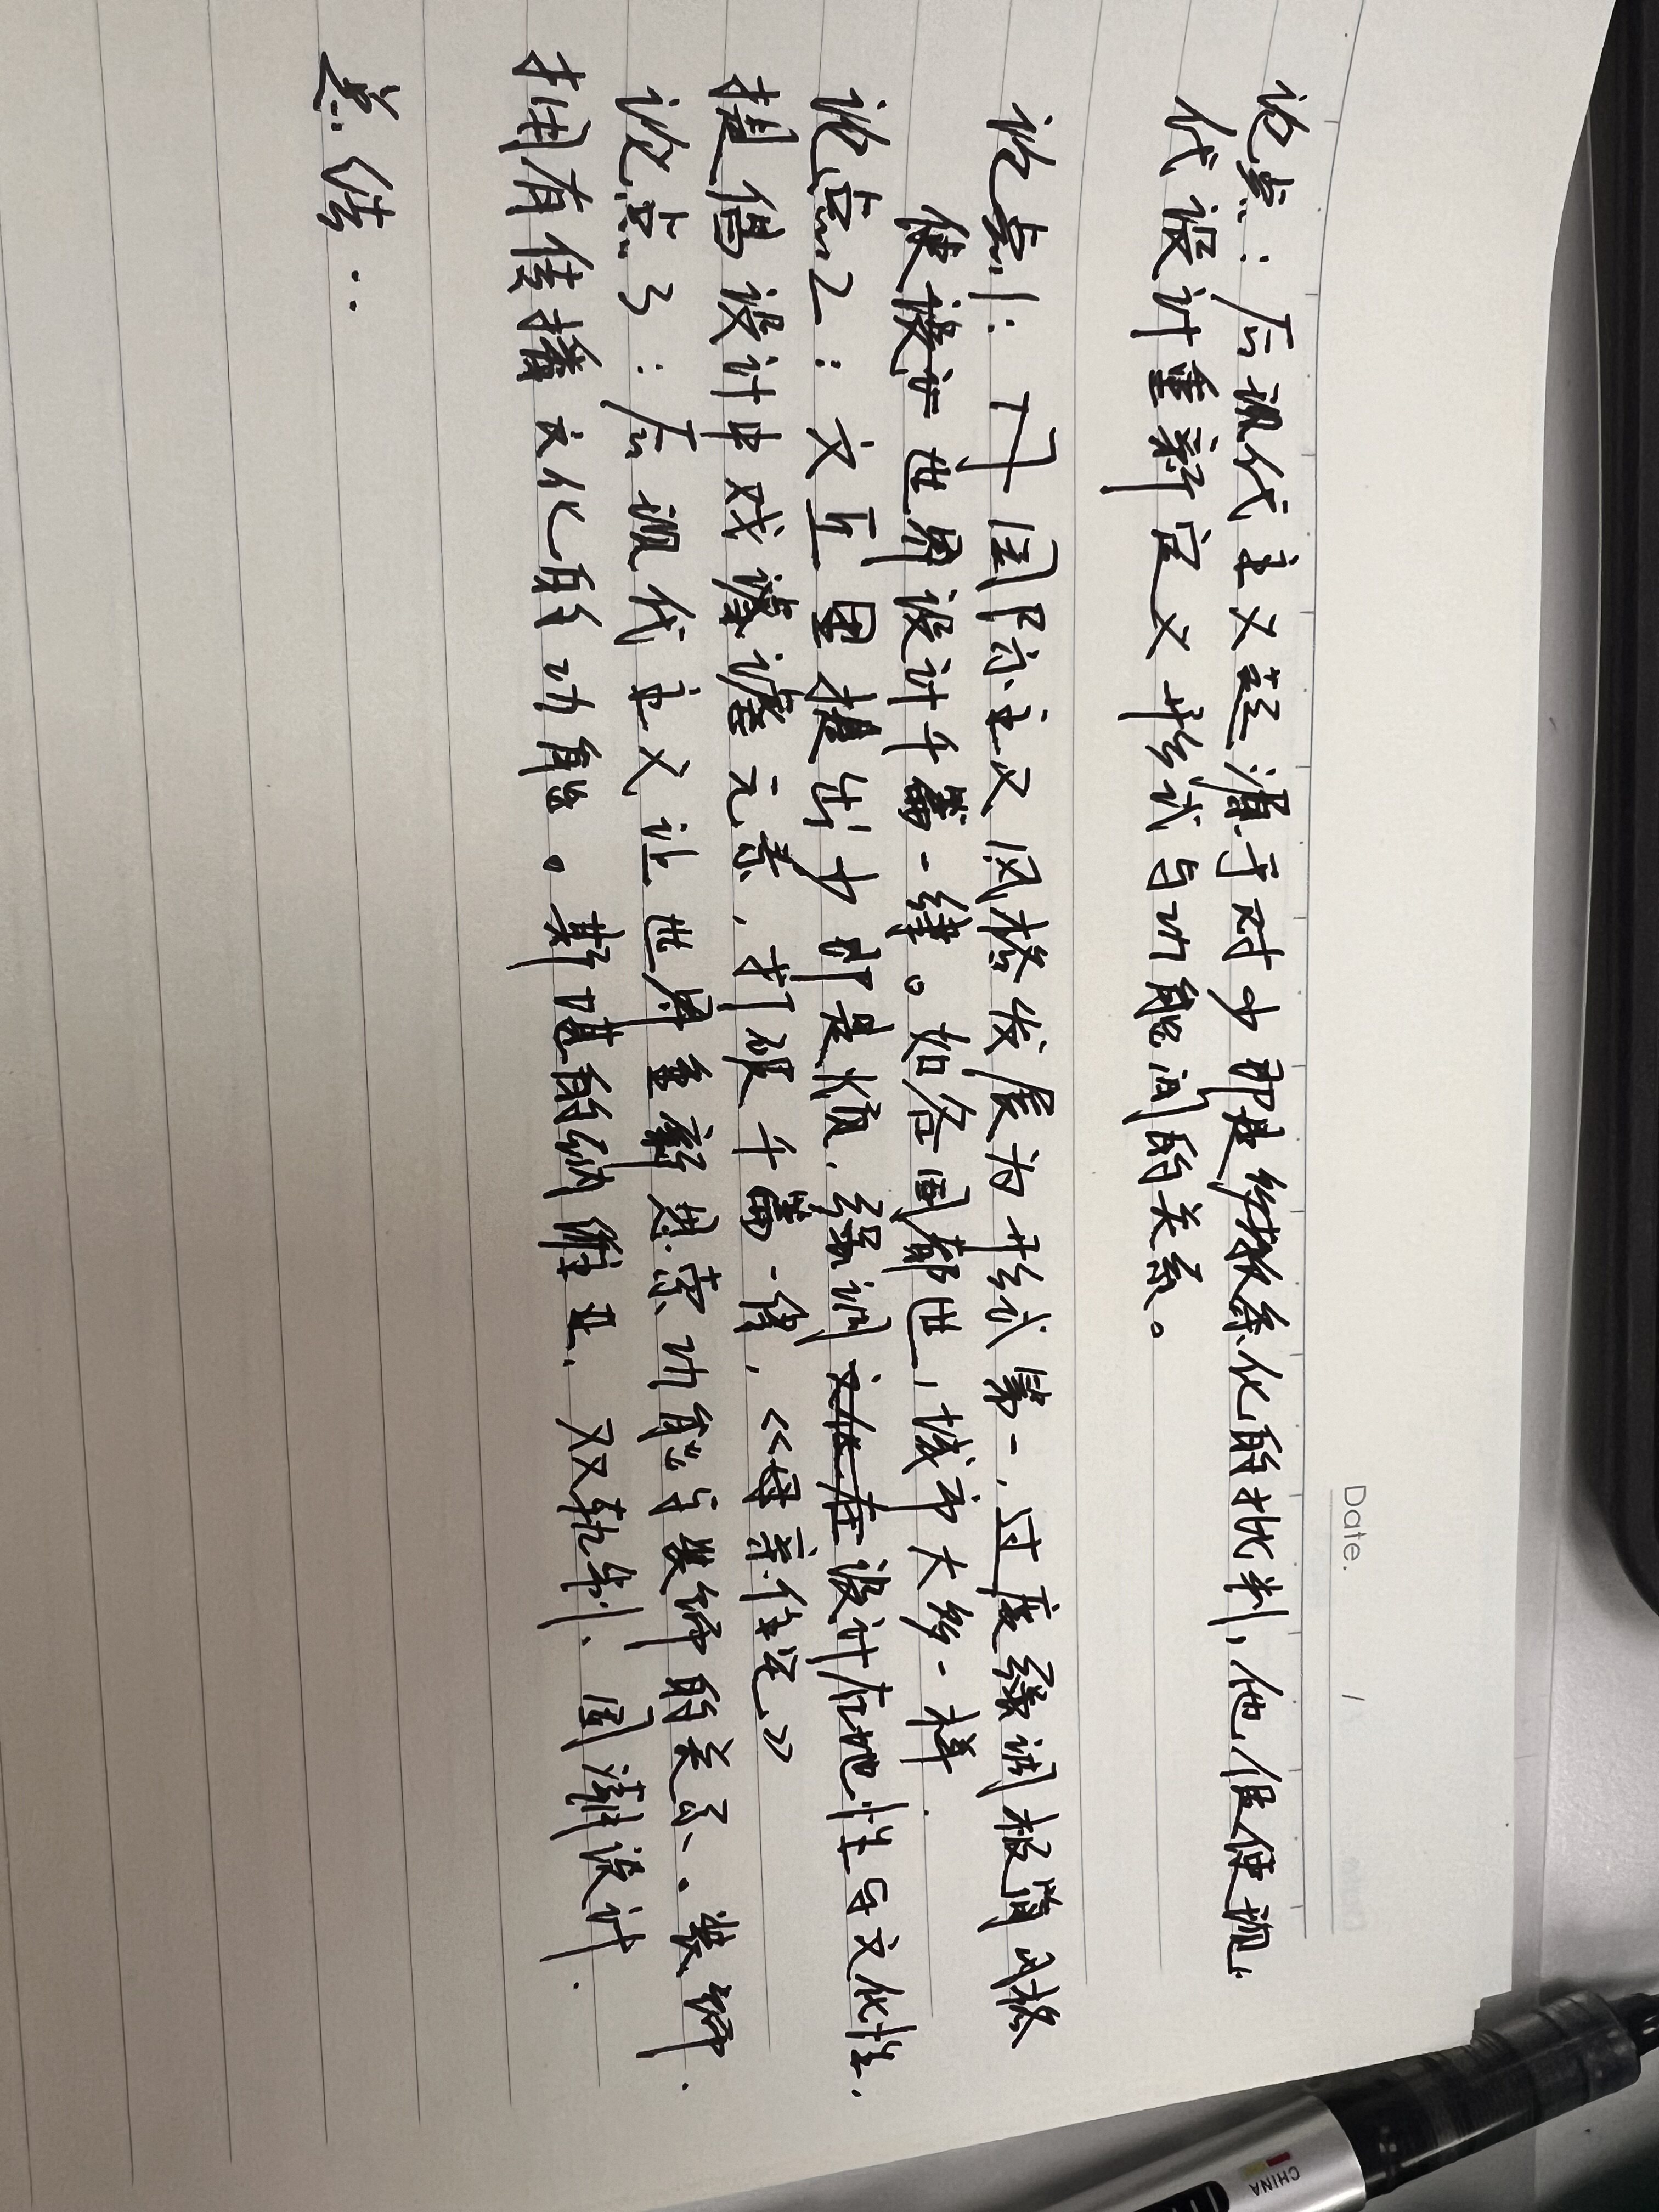 Date. /
论点：后现代主义起源于对少即是多教条化的批判，他促使现
代设计重新定义形式与功能间的关系。
论点1：丁 国际主义风格发展为形式第一，过度强调极简风格
使 世界设计千篇一律。如各国都进，城市大多一样.
论点2：文丘里提出少即是烦，强调在设计在地性与文化性，
提倡设计中戏谑元素，打破千篇一律，《母亲住宅》
论点3：后现代主义让世界重新思索功能与装饰的关系、。装饰
拥有传播文化的功能。斯 的纳维亚，双轨制、国潮设计.
总结：
CHINA